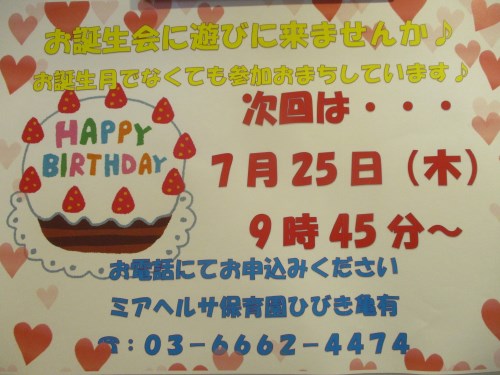 お誕生会に遊びに来ませんか♪
お誕生月でなくても参加おまちしています♪
HAPPY
BIRTHDAY
次回は・・・
7月25日（木）
9時45分～
お電話にてお申込みください
ミアヘルサ保育園ひびき亀有
☎：03－6662－4474